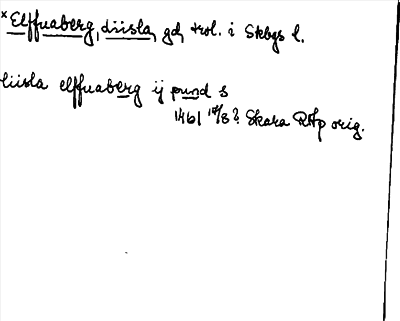 * Elffuaberg, diisla, gd, trol. i Stbgs l.
diisla elffuaberg ij pund s
1461 14/8? Skara RAp orig.